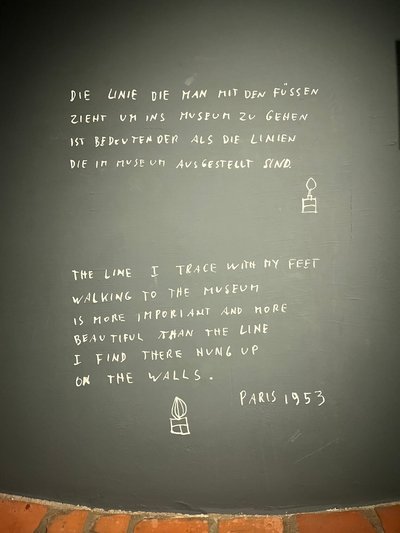 DIE LINIE DIE MAN MIT DEN FÜSSEN
ZIEHT UM INS MUSEUM ZU GEHEN
IST BEDEUTENDER ALS DIE LINIEN
DIE IM MUSEUM AUSGESTELLT SIND.
THE LINE I TRACE WITH MY FEET
WALKING TO THE MUSEUM
IS MORE IMPORTANT AND MORE
BEAUTIFUL THAN THE LINE
I FIND THERE HUNG UP
ON THE WALLS.
PARIS 1953